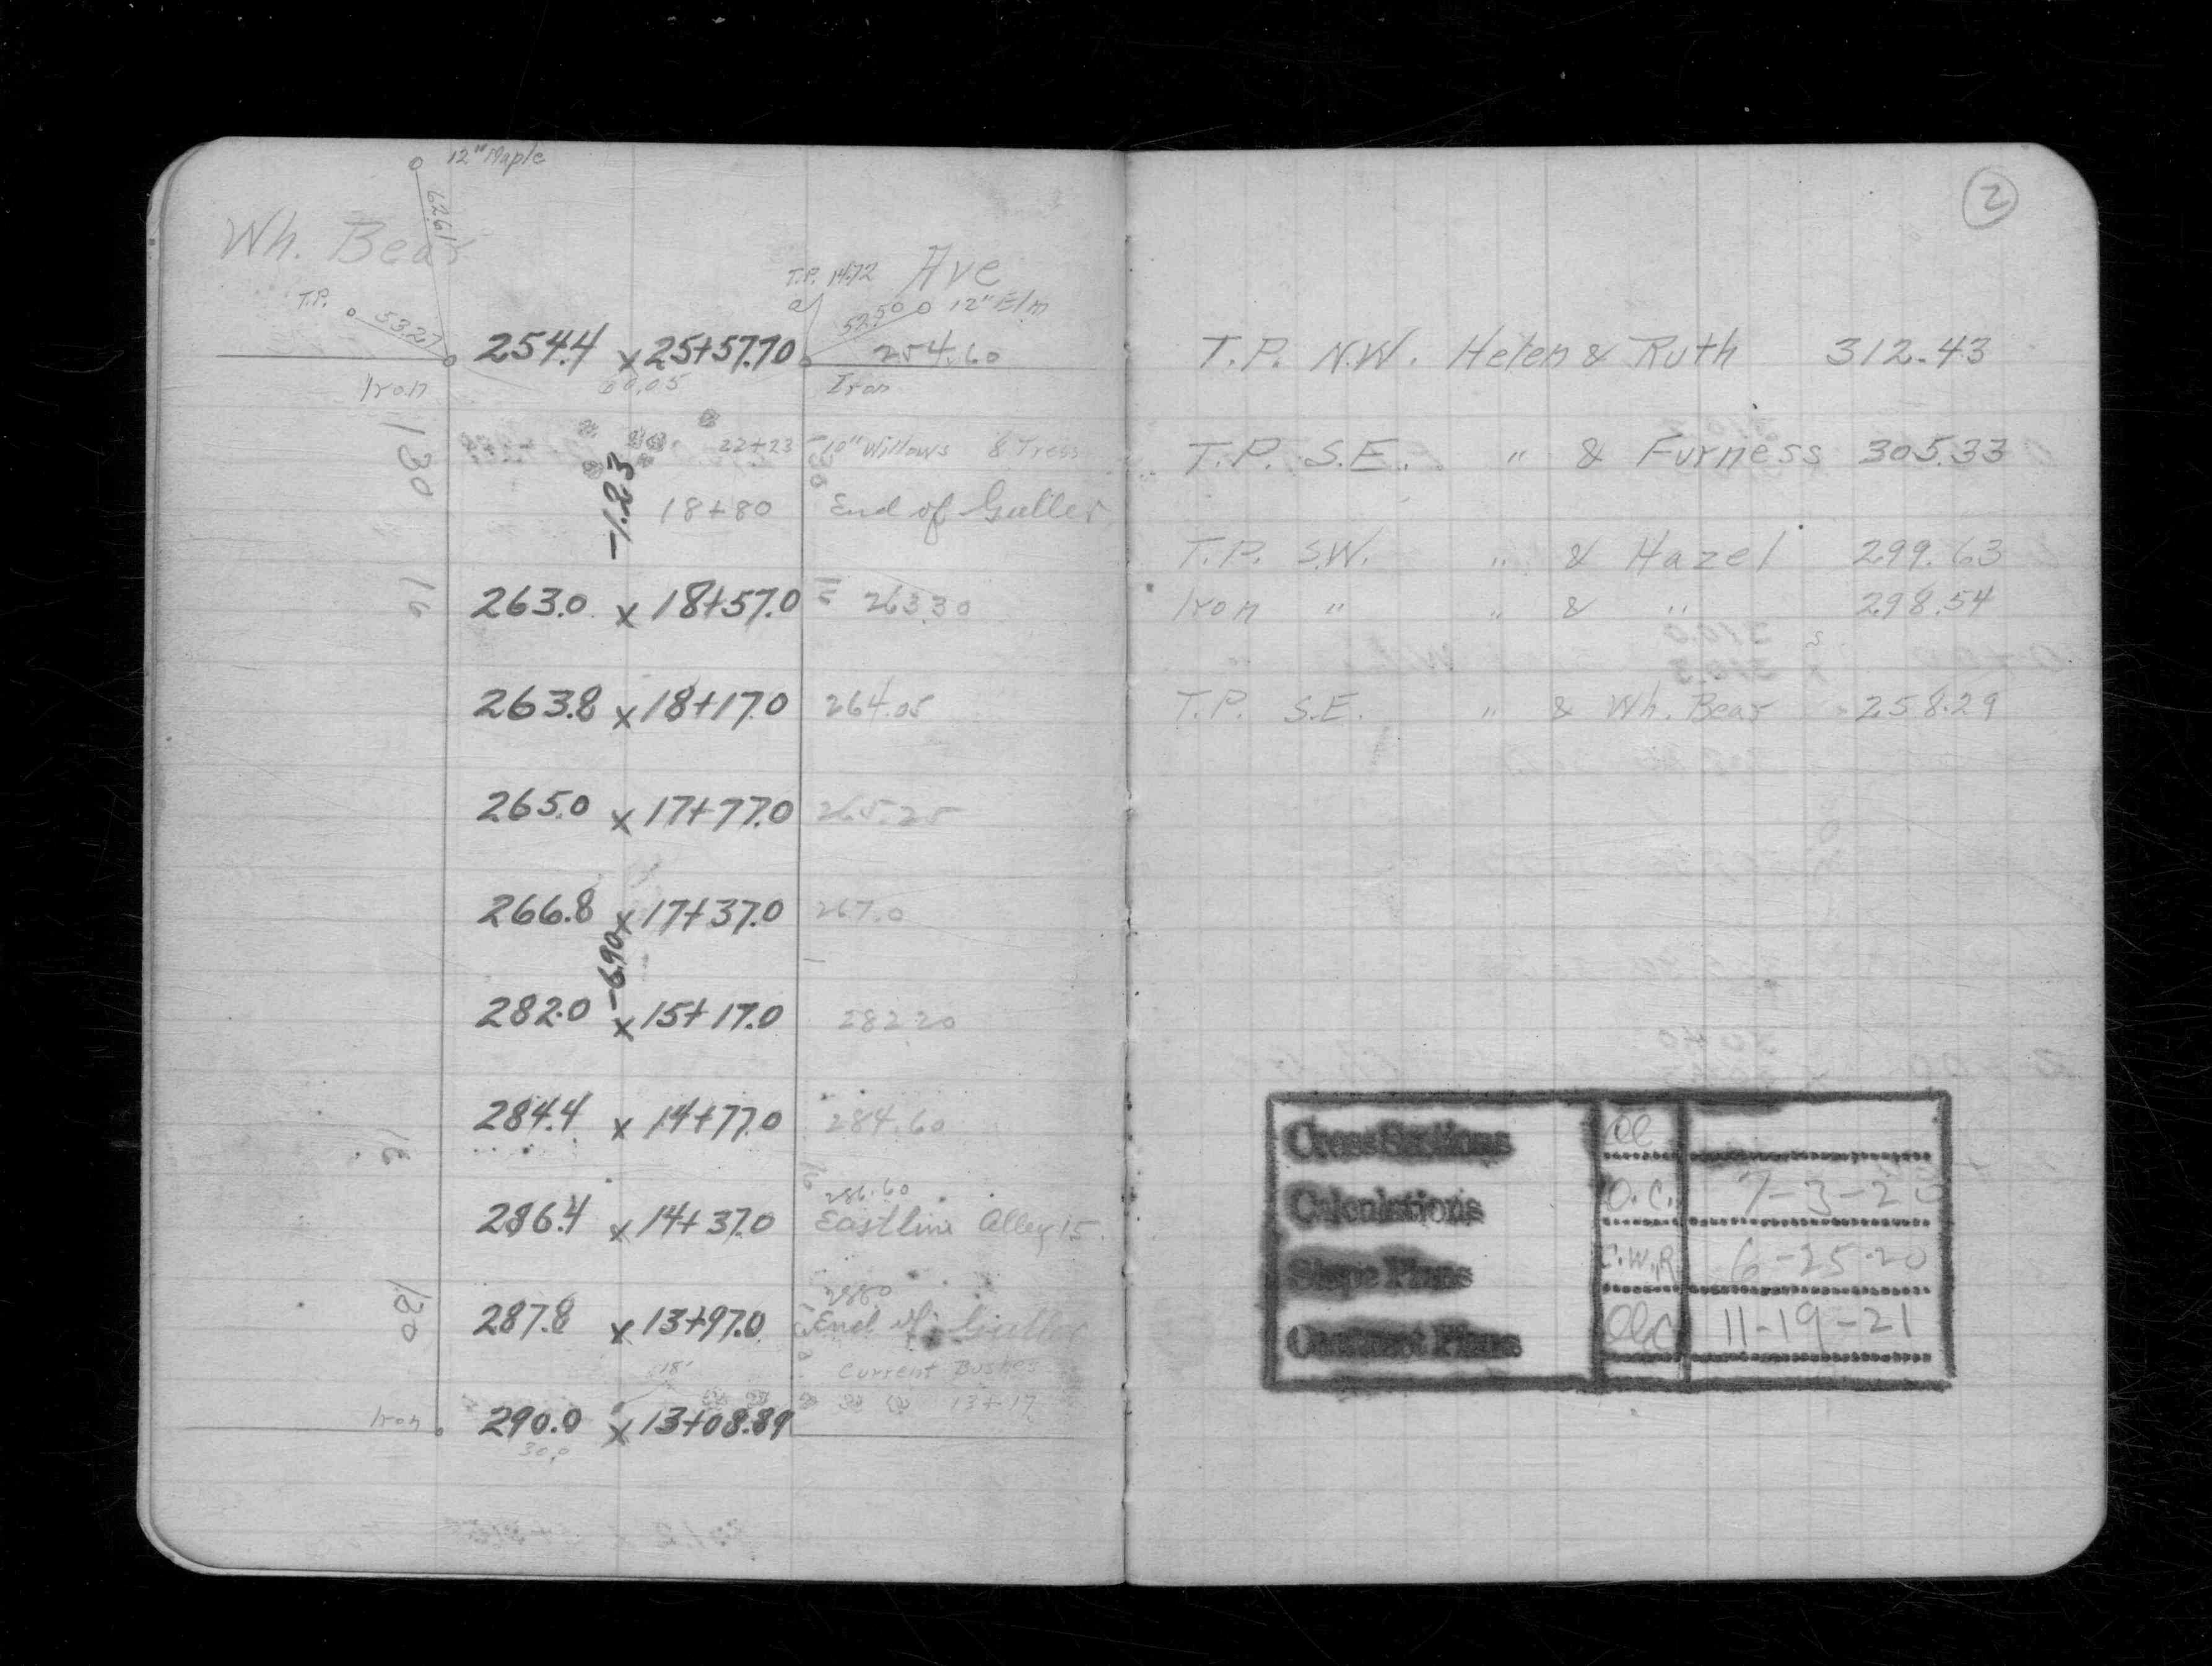 12" Maple
62.61
Wh. Bear
Ave
T.P. 14.72
T.P.
53.27
52.50
12" Elm
254.4 x 25+57.70
254.60
Iron
60.05
Iron
130
22+23
10" Willows 8 Tress
-1.23
18+80
End of Gutter
16
263.0 x 18+57.0
263.30
263.8 x 18+17.0
264.05
265.0 x 17+77.0
265.25
266.8 x 17+37.0
267.0
-6.90
282.0 x 15+17.0
282.20
284.4 x 14+77.0
284.60
16
286.60
286.4 x 14+37.0
Eastline Alley 15
288.0
287.8 x 13+97.0
End of Gutter
130
18'
Current Bushes
13+17
Iron
290.0 x 13+08.89
30.0
2
T.P. N.W. Helen & Ruth 312.43
T.P. S.E. " & Furness 305.33
T.P. S.W. " & Hazel 299.63
Iron " " & " 298.54
T.P. S.E. " & Wh. Bear 258.29
Cross Sections
Calculations O.C. 7-3-20
Slope Plans C.W.R. 6-25-20
Contract Plans OC 11-19-21